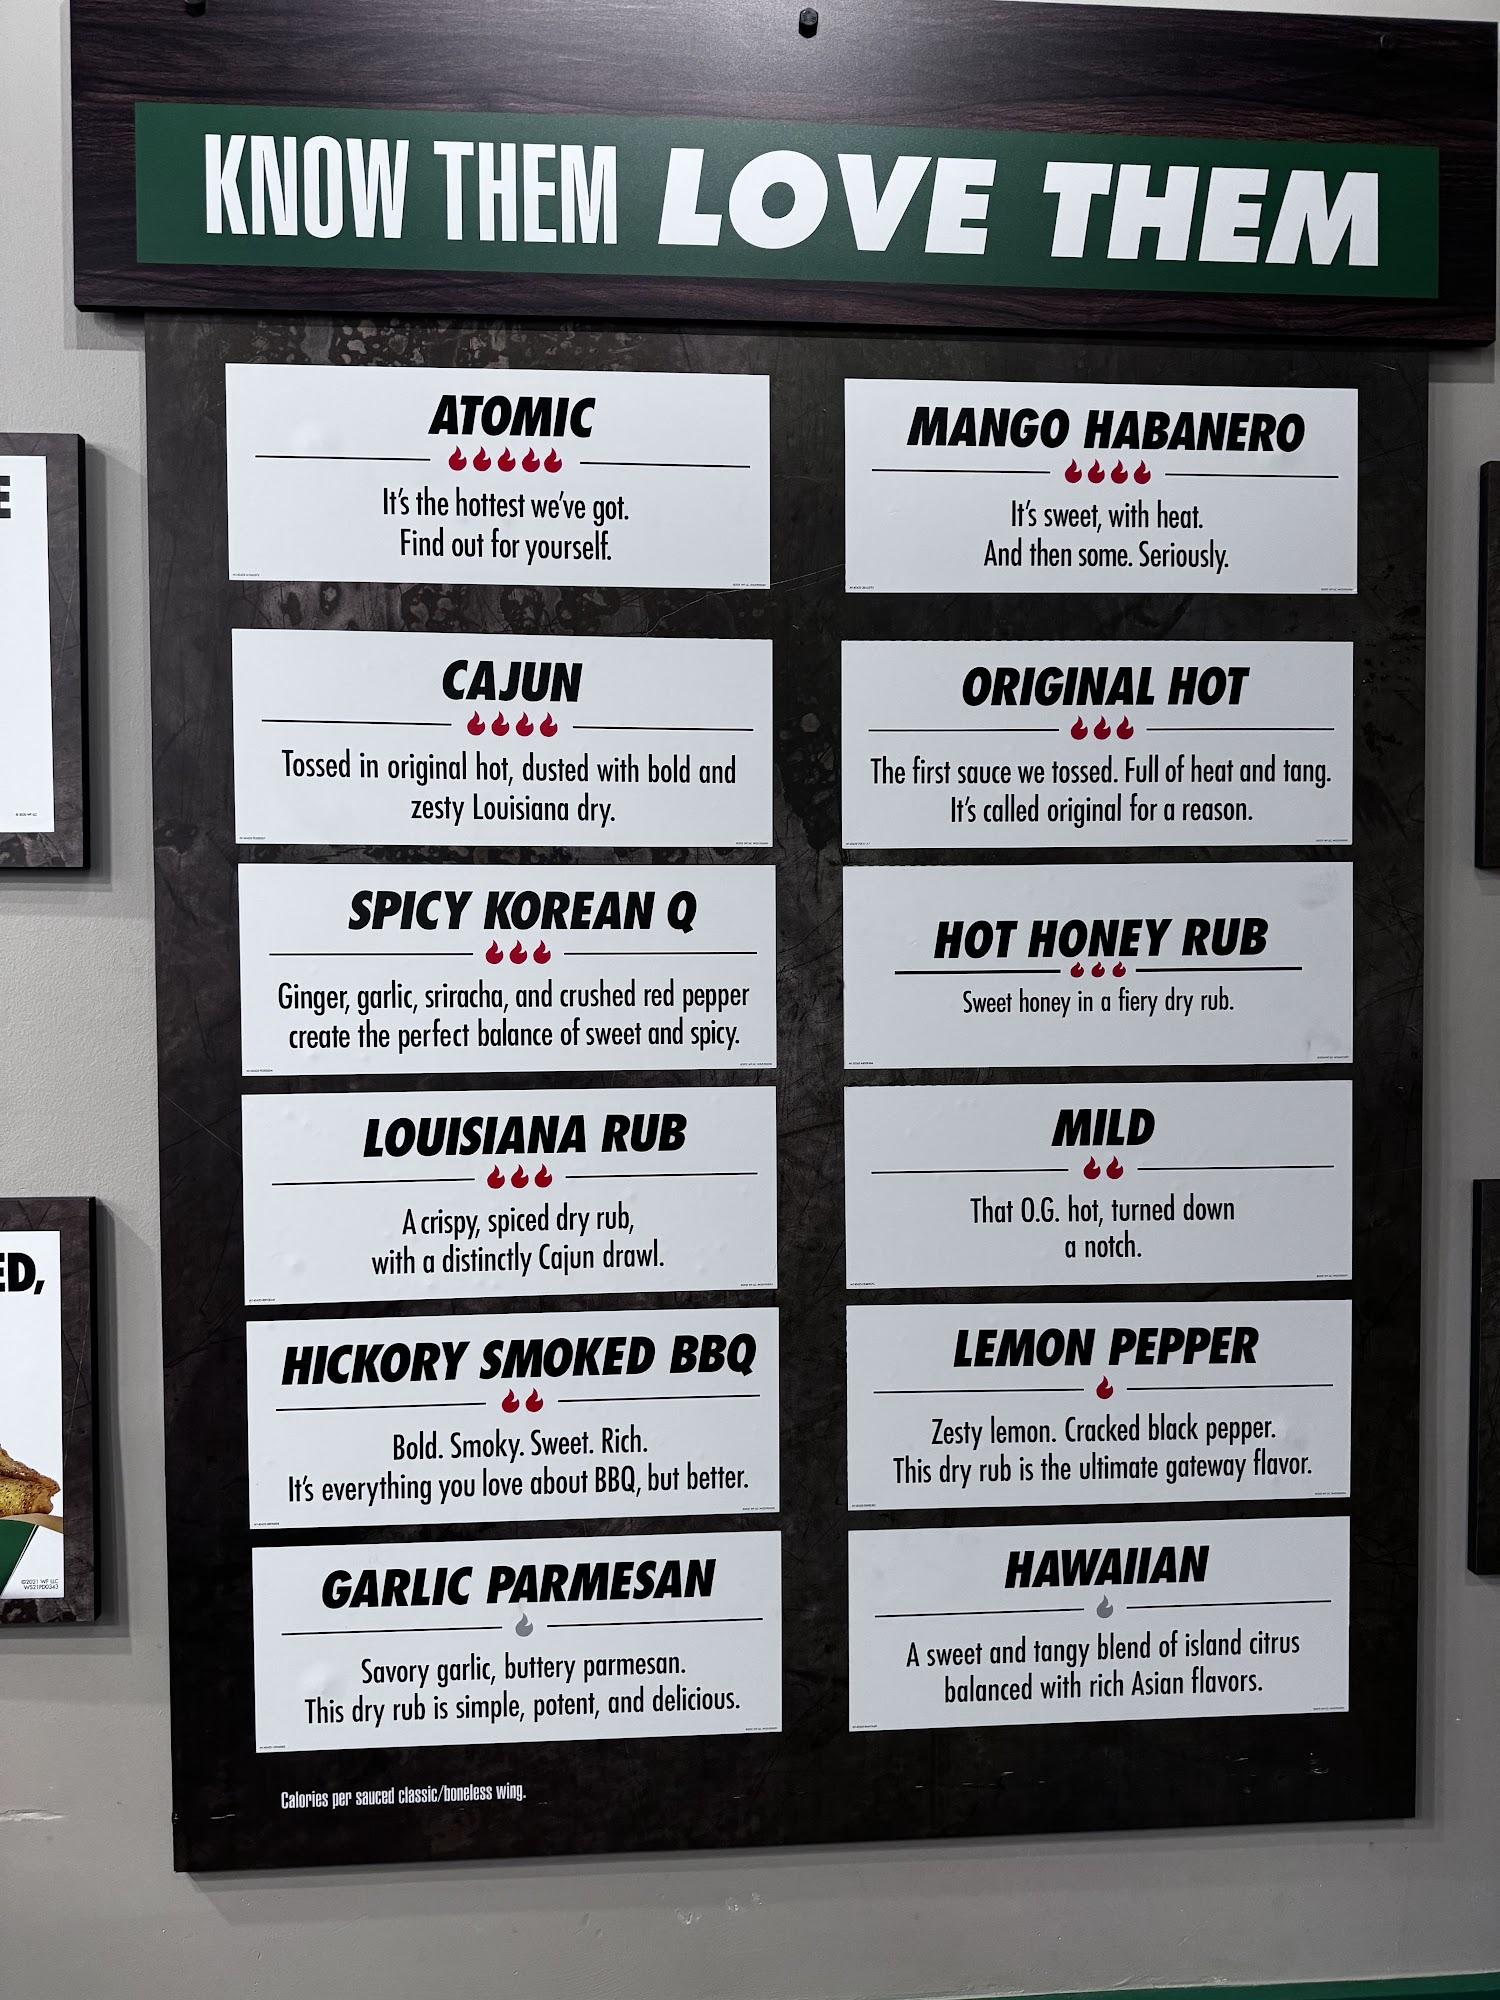 KNOW THEM LOVE THEM
ATOMIC
It's the hottest we've got.
Find out for yourself.
MANGO HABANERO
It's sweet, with heat.
And then some. Seriously.
CAJUN
Tossed in original hot, dusted with bold and
zesty Louisiana dry.
ORIGINAL HOT
The first sauce we tossed. Full of heat and tang.
It's called original for a reason.
SPICY KOREAN Q
Ginger, garlic, sriracha, and crushed red pepper
create the perfect balance of sweet and spicy.
HOT HONEY RUB
Sweet honey in a fiery dry rub.
LOUISIANA RUB
A crispy, spiced dry rub,
with a distinctly Cajun drawl.
MILD
That O.G. hot, turned down
a notch.
HICKORY SMOKED BBQ
Bold. Smoky. Sweet. Rich.
It's everything you love about BBQ, but better.
LEMON PEPPER
Zesty lemon. Cracked black pepper.
This dry rub is the ultimate gateway flavor.
GARLIC PARMESAN
Savory garlic, buttery parmesan.
This dry rub is simple, potent, and delicious.
HAWAIIAN
A sweet and tangy blend of island citrus
balanced with rich Asian flavors.
Calories per sauced classic/boneless wing.
E
ED,
©2021 WF LLC
WS21PD0343